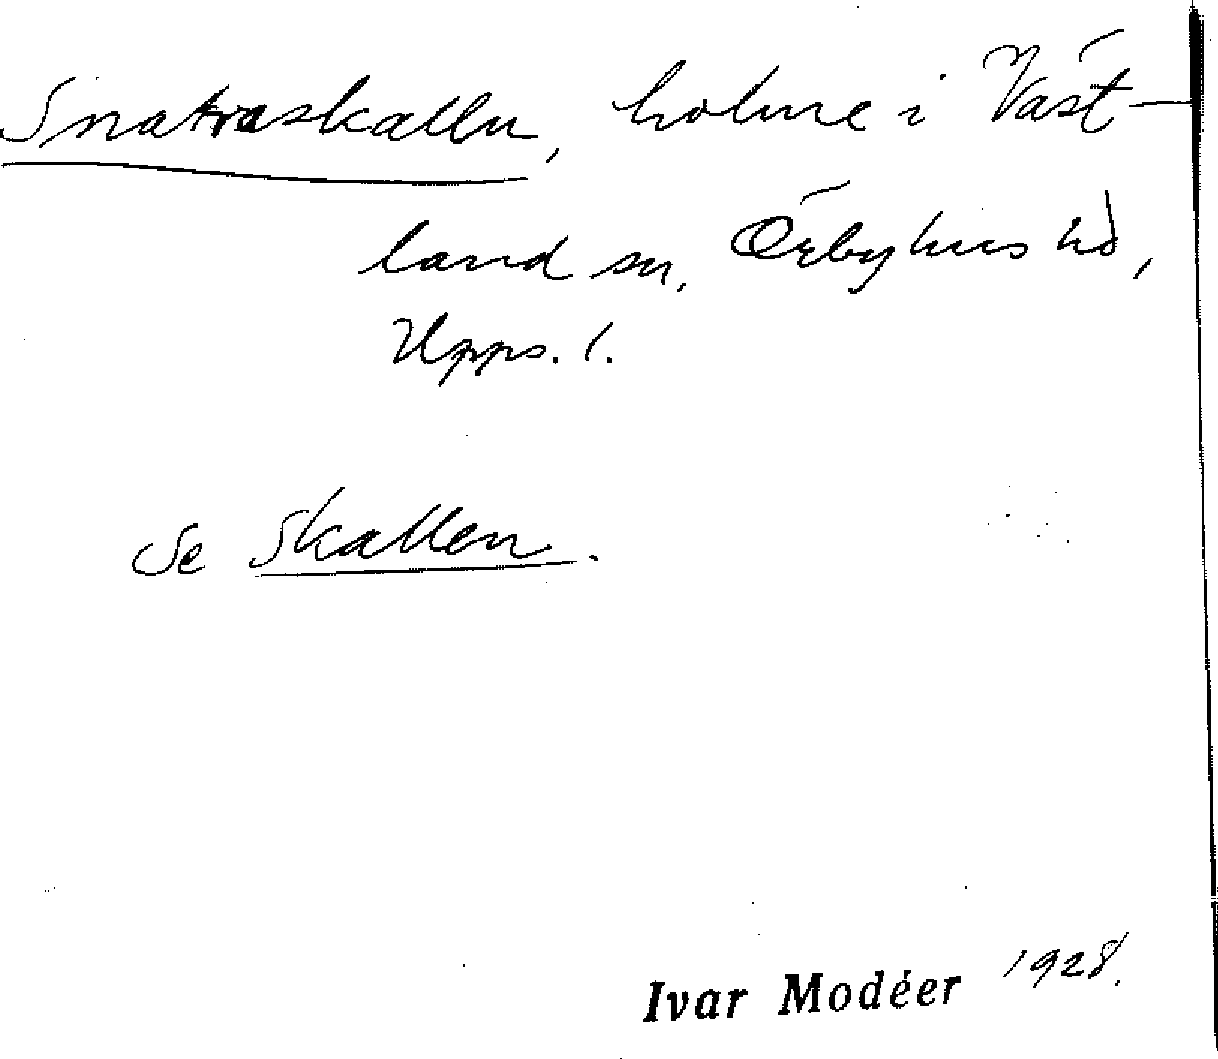 Snatraskallen, holme i Väst-
land sn, Örbyhus hd,
Upps. l.
Se Skallen.
Ivar Modéer 1928.